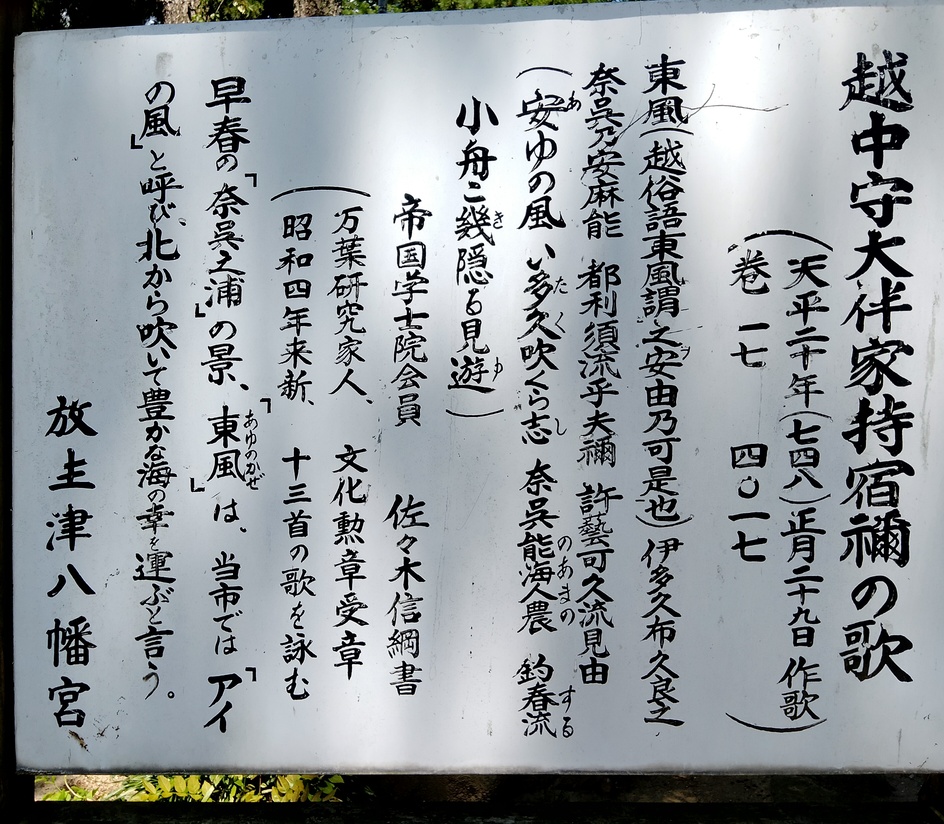 越中守大伴家持宿禰の歌
(天平二十年(七四八)正月二十九日 作歌
巻一七 四〇一七)
東風(越俗語東風謂之安由乃可是也) 伊多久布久良之
奈呉乃安麻能 都利須流乎夫禰 許藝可久流見由
(安ゆの風 い多久吹くら志 奈呉能海人農 釣春流
小舟こ幾隠る見遊)
帝国学士院会員 佐々木信綱書
(万葉研究家人、文化勲章受章
昭和四年来新、十三首の歌を詠む
早春の「奈呉之浦」の景、「東風」は、当市では「アイ
の風」と呼び、北から吹いて豊かな海の幸を運ぶと言う。
放生津八幡宮